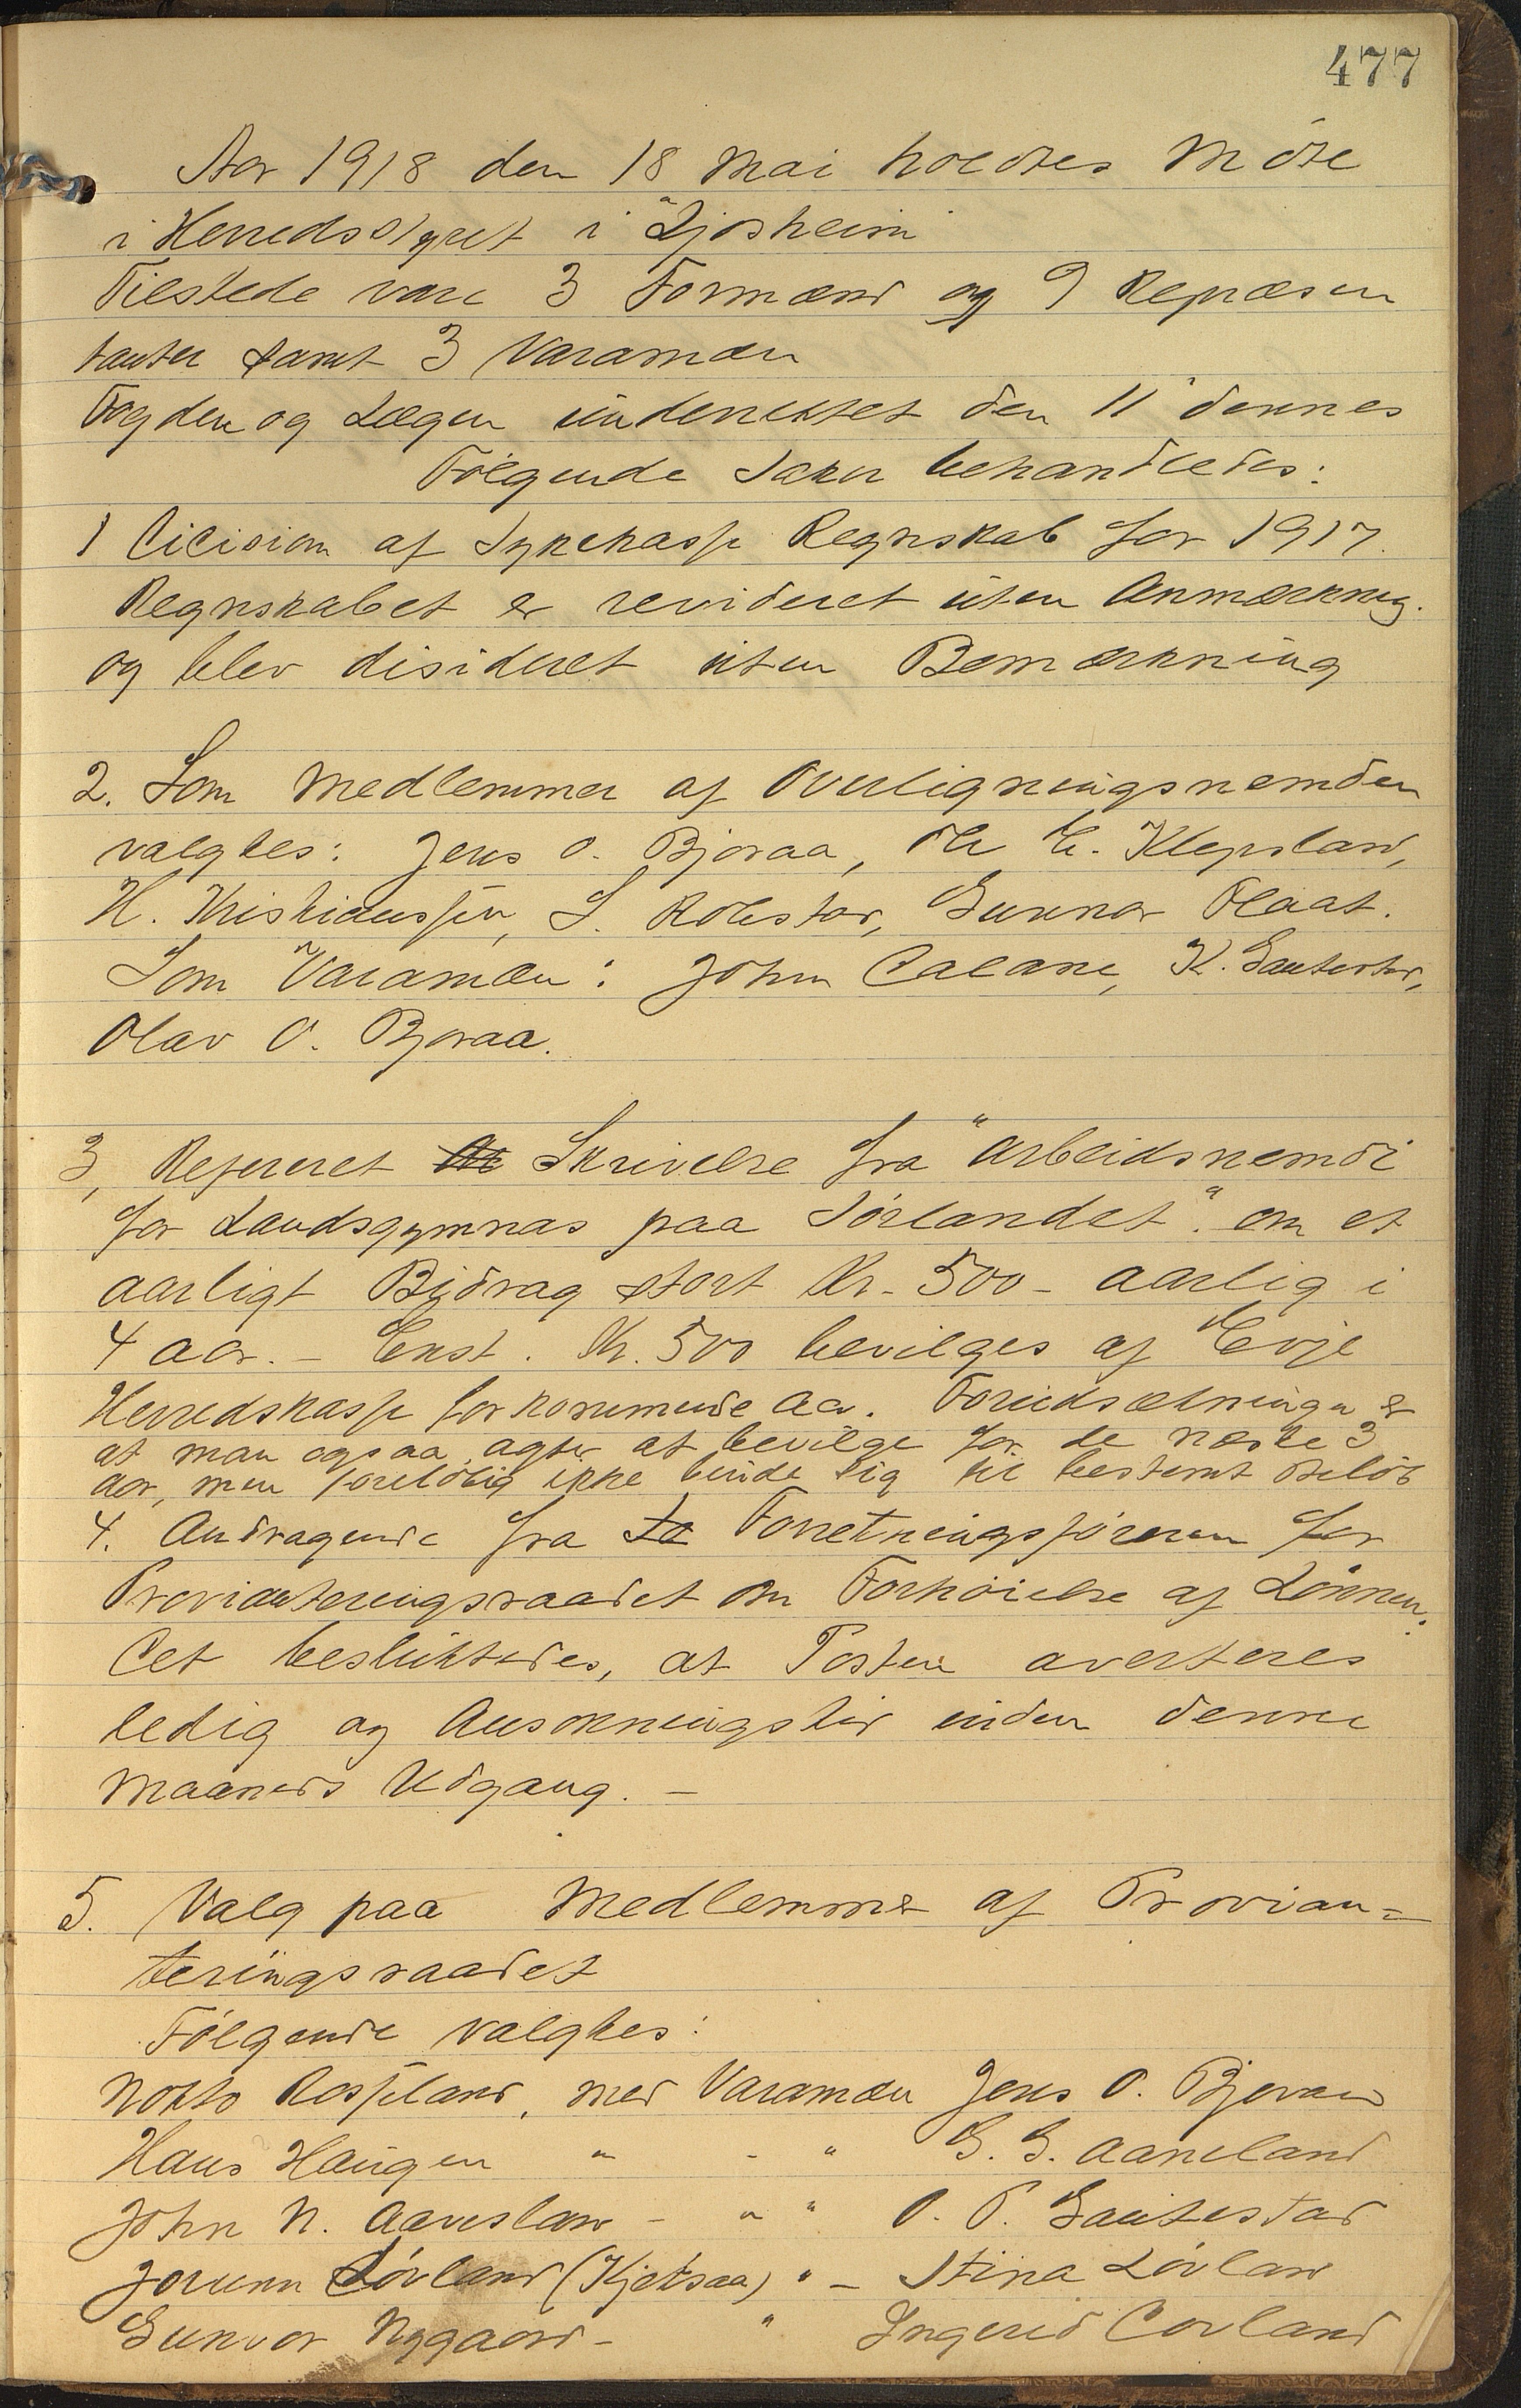 477
Aar 1918 den 18 Mai holdtes Möte
i Herredsstyret i "Ljosheim
Tilstede vare 3 Formænd og 9 Repræsen
tanter samt 3 Varamæn
Fogden og Lægen underrettet den 11 dennes
Fölgende Saker behandledes:
1 Dicision af Sykekasse Regnskab for 1917.
Regnskabet er revideret uten Anmærkning.
og blev disideret uten Bemærkning
2. Som Medlemmer af Overligningsnemden
valgtes: Jens O. Bjoraa, E. Klepsland,
H. Kristianssen, S. Rolstad, Gunnar Flaat.
Som Varamæn: John Dalane, K. Gautestad,
Olav O. Bjoraa.
3, Refereret Skrivelse fra "Arbeidsnemdi
for Landsgymnas paa Sörlandet" om et
aarligt Bidrag stort Kr. 500 - aarlig i
4 aar. - Enst. Kr. 500 bevilges af Evje
Herredskasse for kommende Aar. Forudsætningen er
at man ogsaa agter at bevilge for de næste 3
aar, men forelöbig ikke binde sig til bestemt Belöb
4. Andragende fra Forretningsföreren for
Provianteringsraadet om Forhöielse af Lönnen.
Det besluttedes, at Posten averteres
ledig og Ansökningstid inden denne
Maaneds Udgang. -
5. Valg paa Medlemmer af Provian=
teringsraadet
Fölgende valgtes:
Nokto Rosseland, med Varamæn Jens O. Bjoraa
Hans Haugen " - " G. G. Aaneland
John N. Aaneslan - " " O. P. Gautestad
Jorunn Lövland (Kjetsaa) " - Stina Lövland
Gunvor Nygaard - " Ingerid Dovland